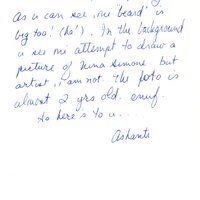 As u can see, me 'beard' is
big too! (ho'). In the background
u see mi attempt to draw a
picture of Nina Simone. but
artist, i am not. The foto is
almost 2 yrs old. enuf.
So here's to u....
Ashanti